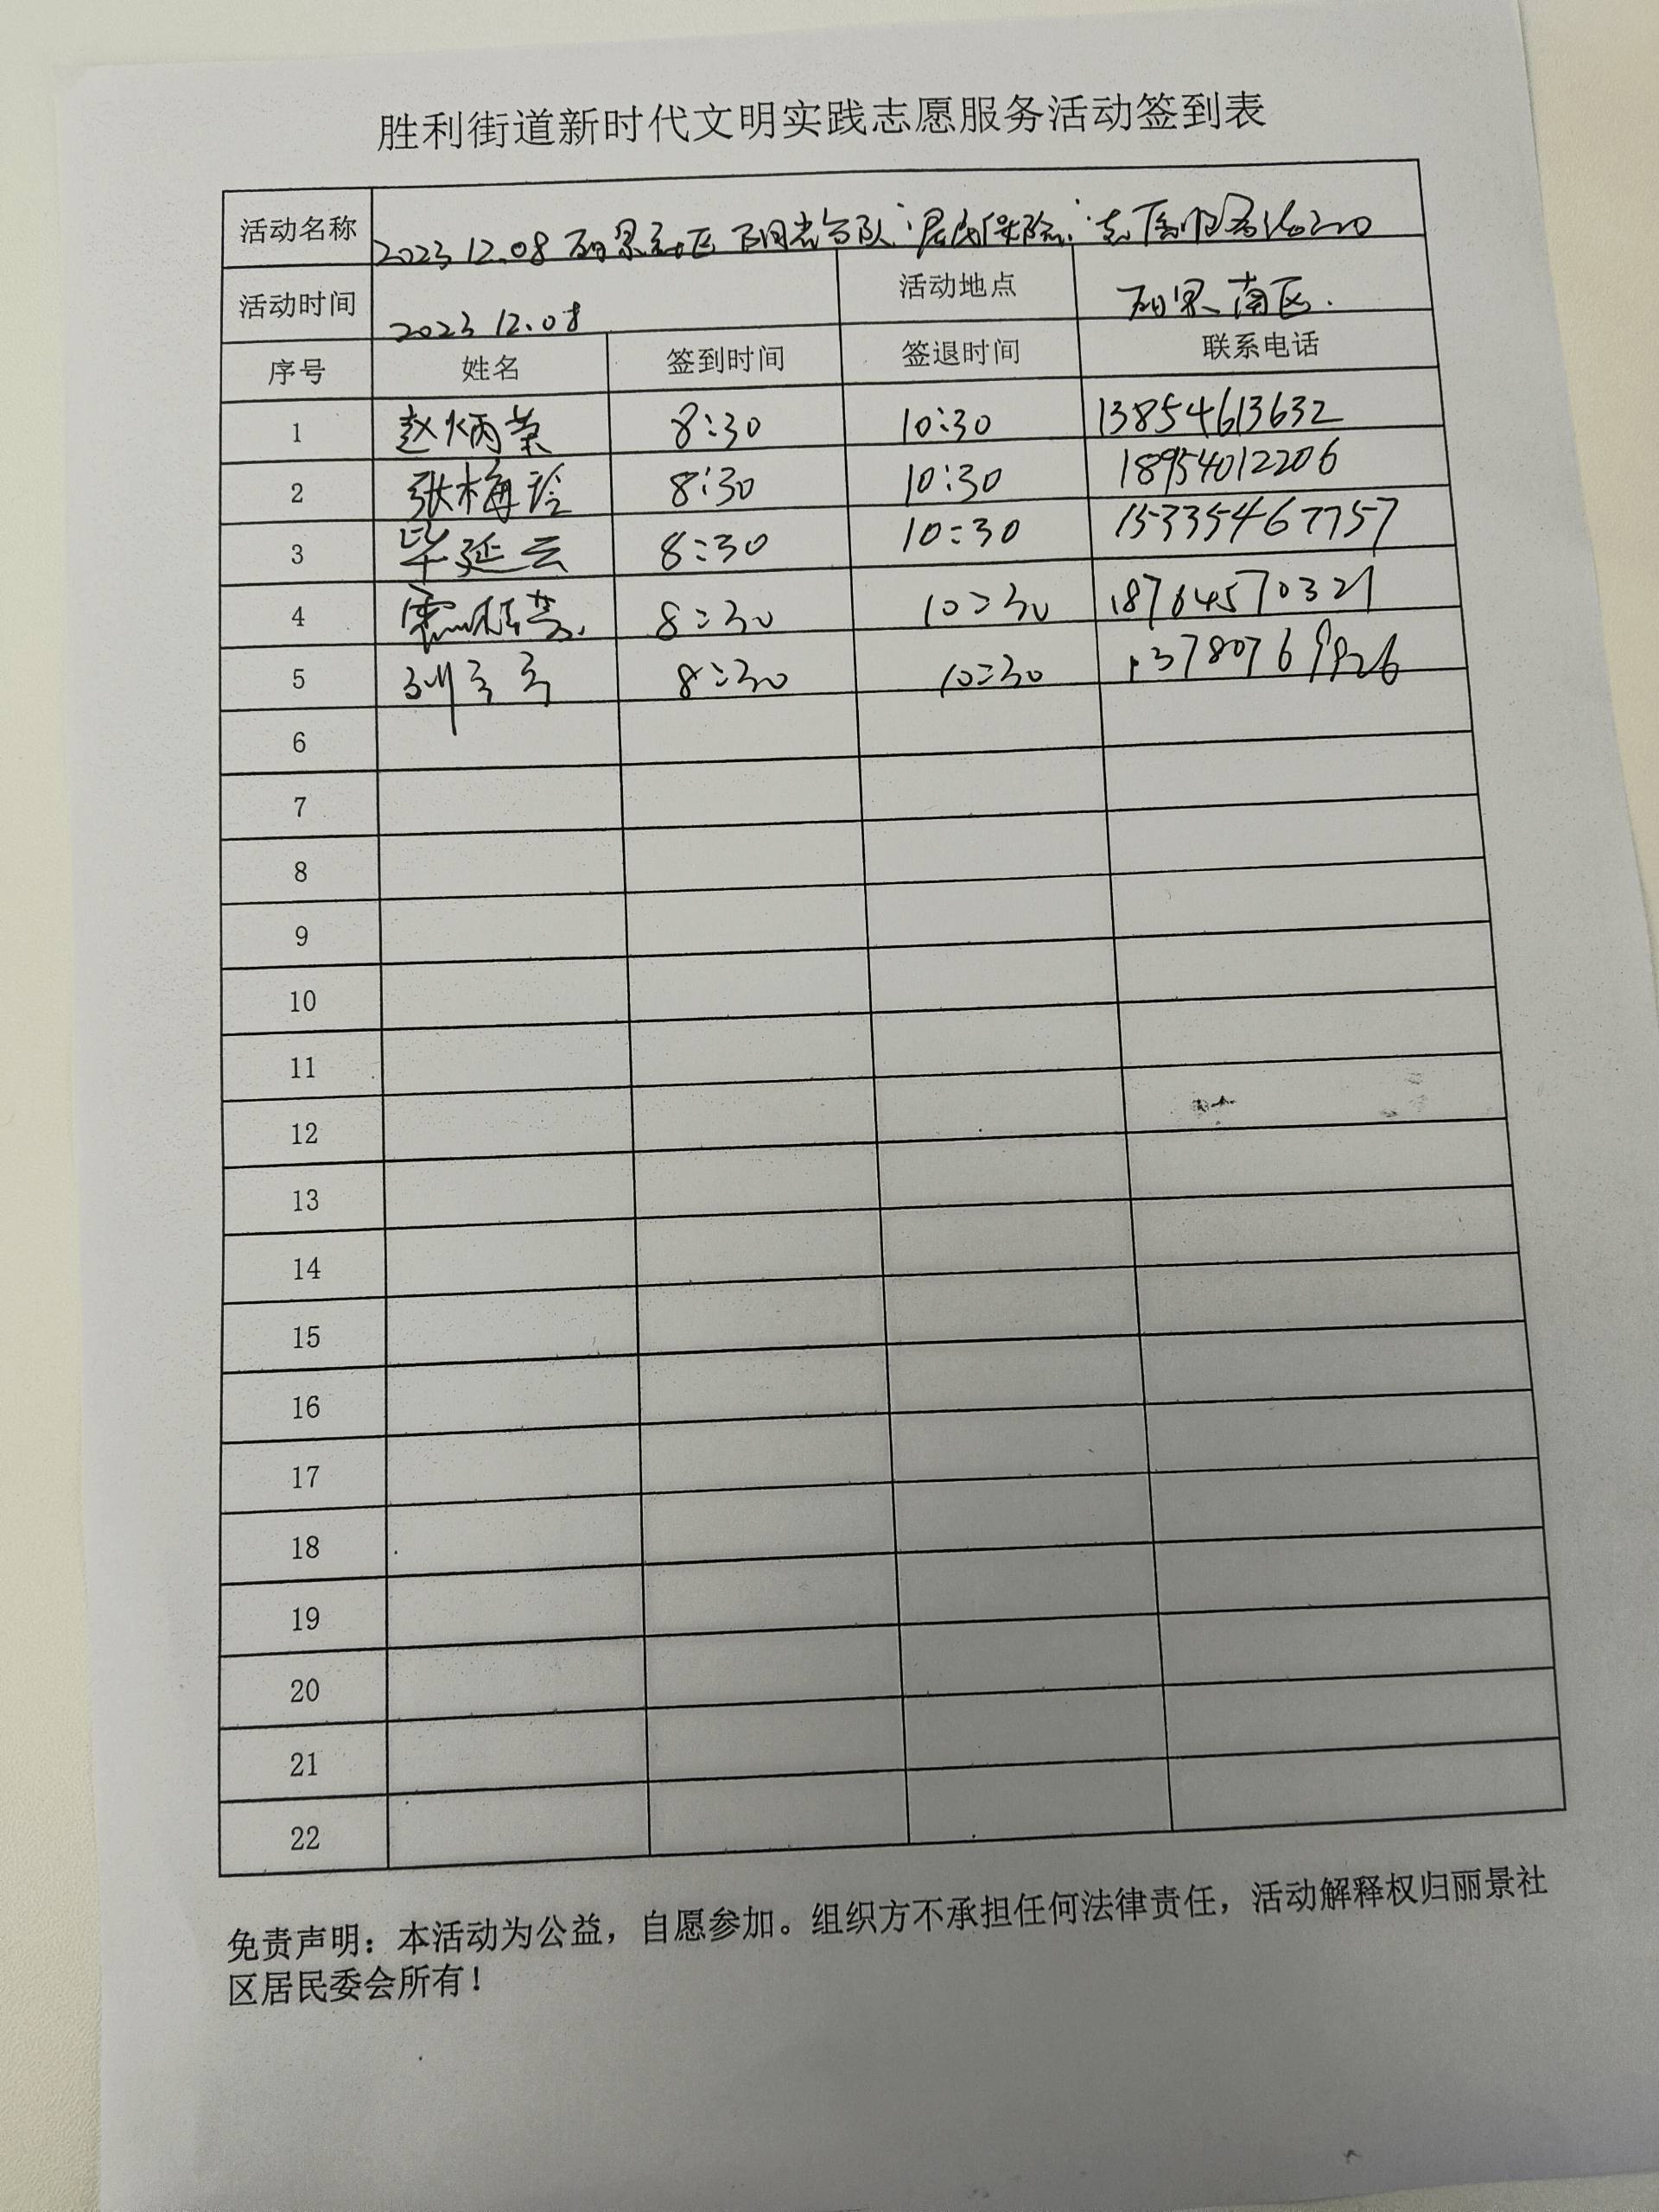 胜利街道新时代文明实践志愿服务活动签到表
活动名称 2023 12.08 丽景社区 阳光分队“居民保险”志愿服务活动
活动时间 2023 12.08 活动地点 丽景南区.
序号 姓名 签到时间 签退时间 联系电话
1 赵炳荣 8:30 10:30 13854613632
2 张梅玲 8:30 10:30 18954012206
3 毕延云 8:30 10:30 15335467757
4 8:30 10:30 18764570321
5 8:30 10:30
6
7
8
9
10
11
12
13
14
15
16
17
18
19
20
21
22
免责声明：本活动为公益，自愿参加。组织方不承担任何法律责任，活动解释权归丽景社
区居民委会所有！